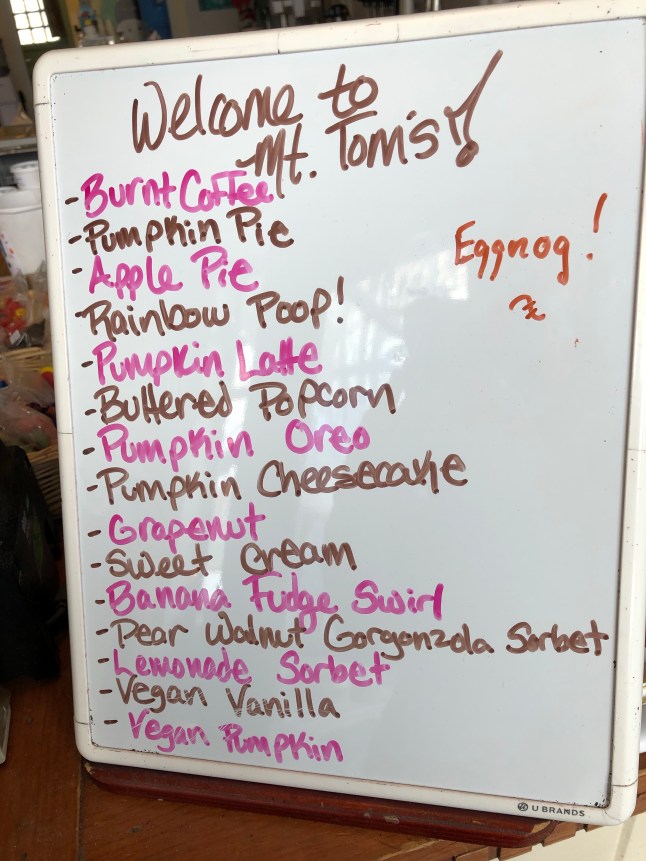 Welcome to
Mt. Tom's!
- Burnt Coffee
- Pumpkin Pie
- Apple Pie
- Rainbow Poop!
- Pumpkin Latte
- Buttered Popcorn
- Pumpkin Oreo
- Pumpkin Cheesecake
- Grapenut
- Sweet Cream
- Banana Fudge Swirl
- Pear Walnut Gorgonzola Sorbet
- Lemonade Sorbet
- Vegan Vanilla
- Vegan Pumpkin
Eggnog!
U BRANDS